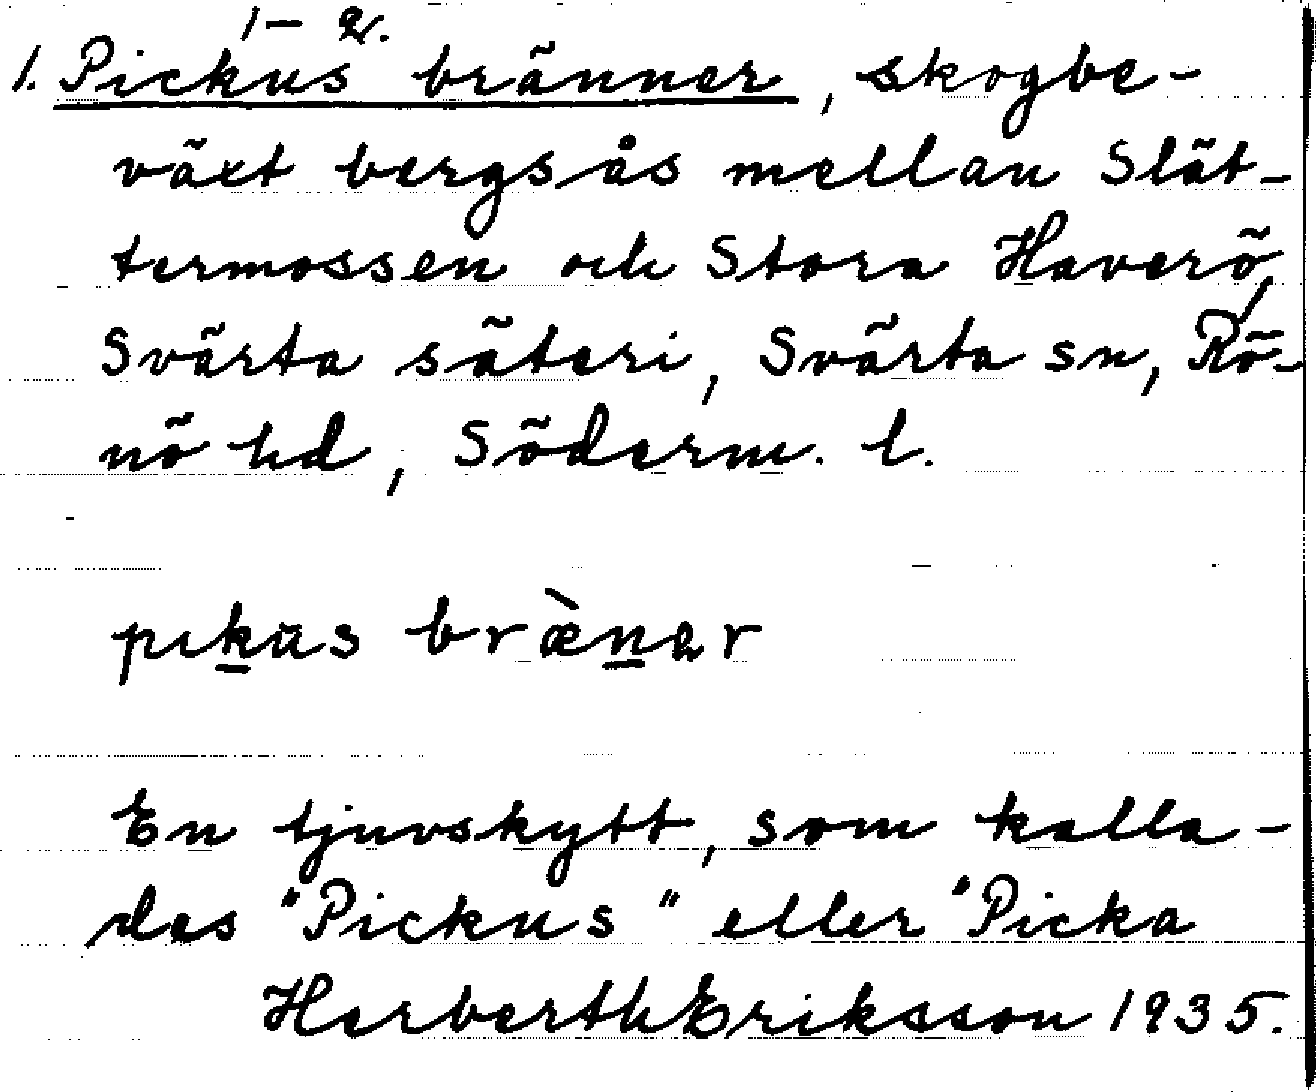 1–2.
1. Pickus bränner, skogbe-
växt bergsås mellan Slät-
termossen och Stora Haverö,
Svärta säteri, Svärta sn, Rö-
nö hd, Söderm. l.
pıkus bræ̀nar
En tjuvskytt, som kalla-
des "Pickus" eller "Picka
Herberth Eriksson 1935.